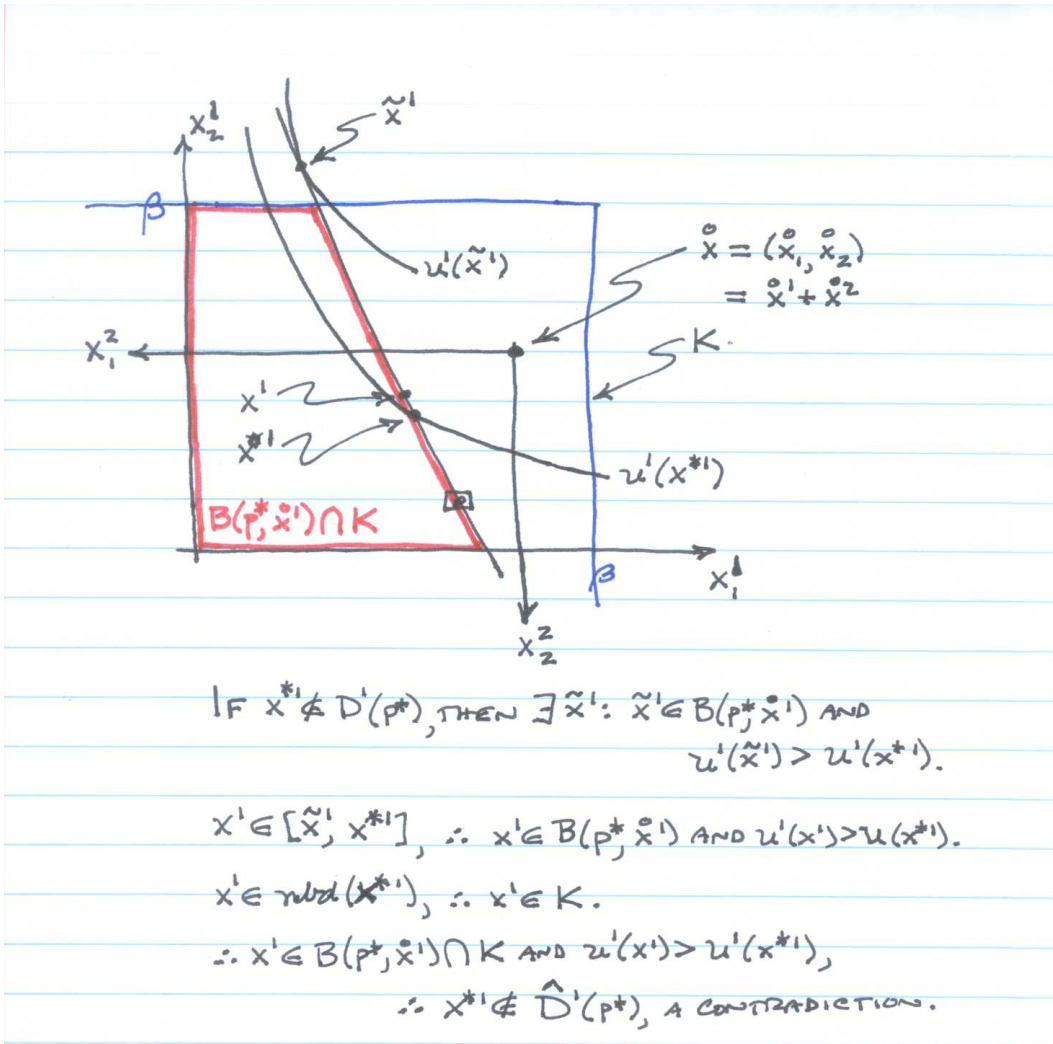 x̃¹
x₂¹
β
u¹(x̃¹)
x̊ = (x̊₁, x̊₂)
= x̊¹ + x̊²
K.
x₁²
x¹
x*¹
u¹(x*¹)
B(p*, x̊¹) ∩ K
β
x₁¹
x₂²
IF x*¹ ∉ D¹(p*), THEN ∃ x̃¹: x̃¹ ∈ B(p*, x̊¹) AND
u¹(x̃¹) > u¹(x*¹).
x¹ ∈ [x̃¹, x*¹], ∴ x¹ ∈ B(p*, x̊¹) AND u¹(x¹) > u(x*¹).
x¹ ∈ nbd(x*¹), ∴ x¹ ∈ K.
∴ x¹ ∈ B(p*, x̊¹) ∩ K AND u¹(x¹) > u¹(x*¹),
∴ x*¹ ∉ D̂¹(p*), A CONTRADICTION.